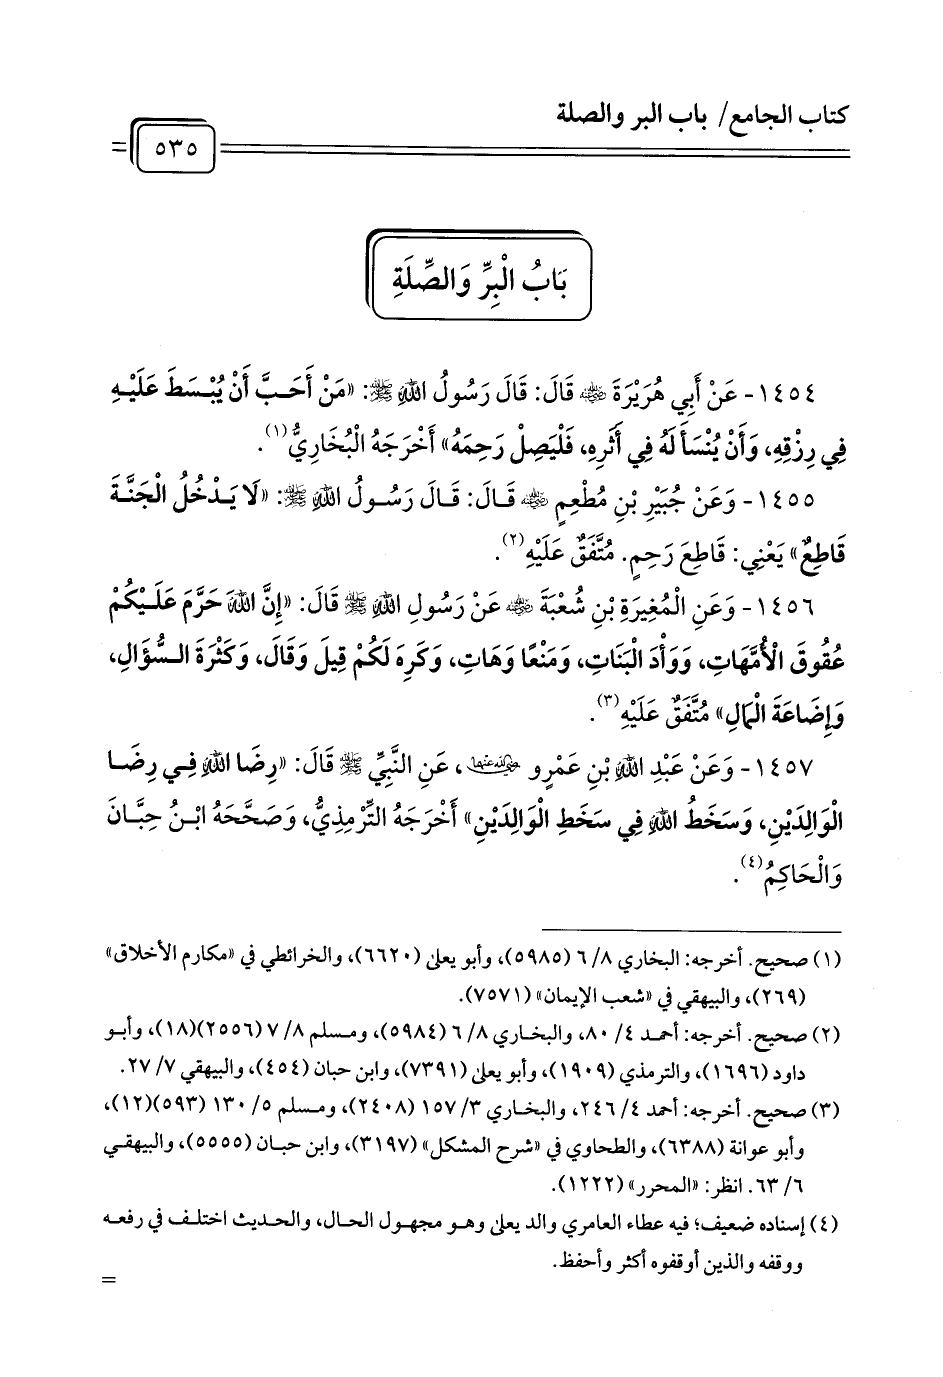 كتاب الجامع/ باب البر والصلة
= ٥٣٥
بَابُ الْبِرِّ وَالصِّلَةِ
١٤٥٤- عَنْ أَبِي هُرَيْرَةَ ﵁ قَالَ: قَالَ رَسُولُ اللهِ ﷺ: «مَنْ أَحَبَّ أَنْ يُبْسَطَ عَلَيْهِ
فِي رِزْقِهِ، وَأَنْ يُنْسَأَ لَهُ فِي أَثَرِهِ، فَلْيَصِلْ رَحِمَهُ» أَخْرَجَهُ الْبُخَارِيُّ(١).
١٤٥٥- وَعَنْ جُبَيْرِ بْنِ مُطْعِمٍ ﵁ قَالَ: قَالَ رَسُولُ اللهِ ﷺ: «لَا يَدْخُلُ الْجَنَّةَ
قَاطِعٌ» يَعْنِي: قَاطِعَ رَحِمٍ. مُتَّفَقٌ عَلَيْهِ(٢).
١٤٥٦- وَعَنِ الْمُغِيرَةِ بْنِ شُعْبَةَ ﵁ عَنْ رَسُولِ اللهِ ﷺ قَالَ: «إِنَّ اللهَ حَرَّمَ عَلَيْكُمْ
عُقُوقَ الْأُمَّهَاتِ، وَوَأْدَ الْبَنَاتِ، وَمَنْعًا وَهَاتِ، وَكَرِهَ لَكُمْ قِيلَ وَقَالَ، وَكَثْرَةَ السُّؤَالِ،
وَإِضَاعَةَ الْمَالِ» مُتَّفَقٌ عَلَيْهِ(٣).
١٤٥٧- وَعَنْ عَبْدِ اللهِ بْنِ عَمْرٍو رضي الله عنهما، عَنِ النَّبِيِّ ﷺ قَالَ: «رِضَا اللهِ فِي رِضَا
الْوَالِدَيْنِ، وَسَخَطُ اللهِ فِي سَخَطِ الْوَالِدَيْنِ» أَخْرَجَهُ التِّرْمِذِيُّ، وَصَحَّحَهُ ابْنُ حِبَّانَ
وَالْحَاكِمُ(٤).
(١) صحيح. أخرجه: البخاري ٨/ ٦ (٥٩٨٥)، وأبو يعلى (٦٦٢٠)، والخرائطي في «مكارم الأخلاق»
(٢٦٩)، والبيهقي في «شعب الإيمان» (٧٥٧١).
(٢) صحيح. أخرجه: أحمد ٤/ ٨٠، والبخاري ٨/ ٦ (٥٩٨٤)، ومسلم ٨/ ٧ (٢٥٥٦)(١٨)، وأبو
داود (١٦٩٦)، والترمذي (١٩٠٩)، وأبو يعلى (٧٣٩١)، وابن حبان (٤٥٤)، والبيهقي ٧/ ٢٧.
(٣) صحيح. أخرجه: أحمد ٤/ ٢٤٦، والبخاري ٣/ ١٥٧ (٢٤٠٨)، ومسلم ٥/ ١٣٠ (٥٩٣)(١٢)،
وأبو عوانة (٦٣٨٨)، والطحاوي في «شرح المشكل» (٣١٩٧)، وابن حبان (٥٥٥٥)، والبيهقي
٦/ ٦٣. انظر: «المحرر» (١٢٢٢).
(٤) إسناده ضعيف؛ فيه عطاء العامري والد يعلى وهو مجهول الحال، والحديث اختلف في رفعه
ووقفه والذين أوقفوه أكثر وأحفظ.
=